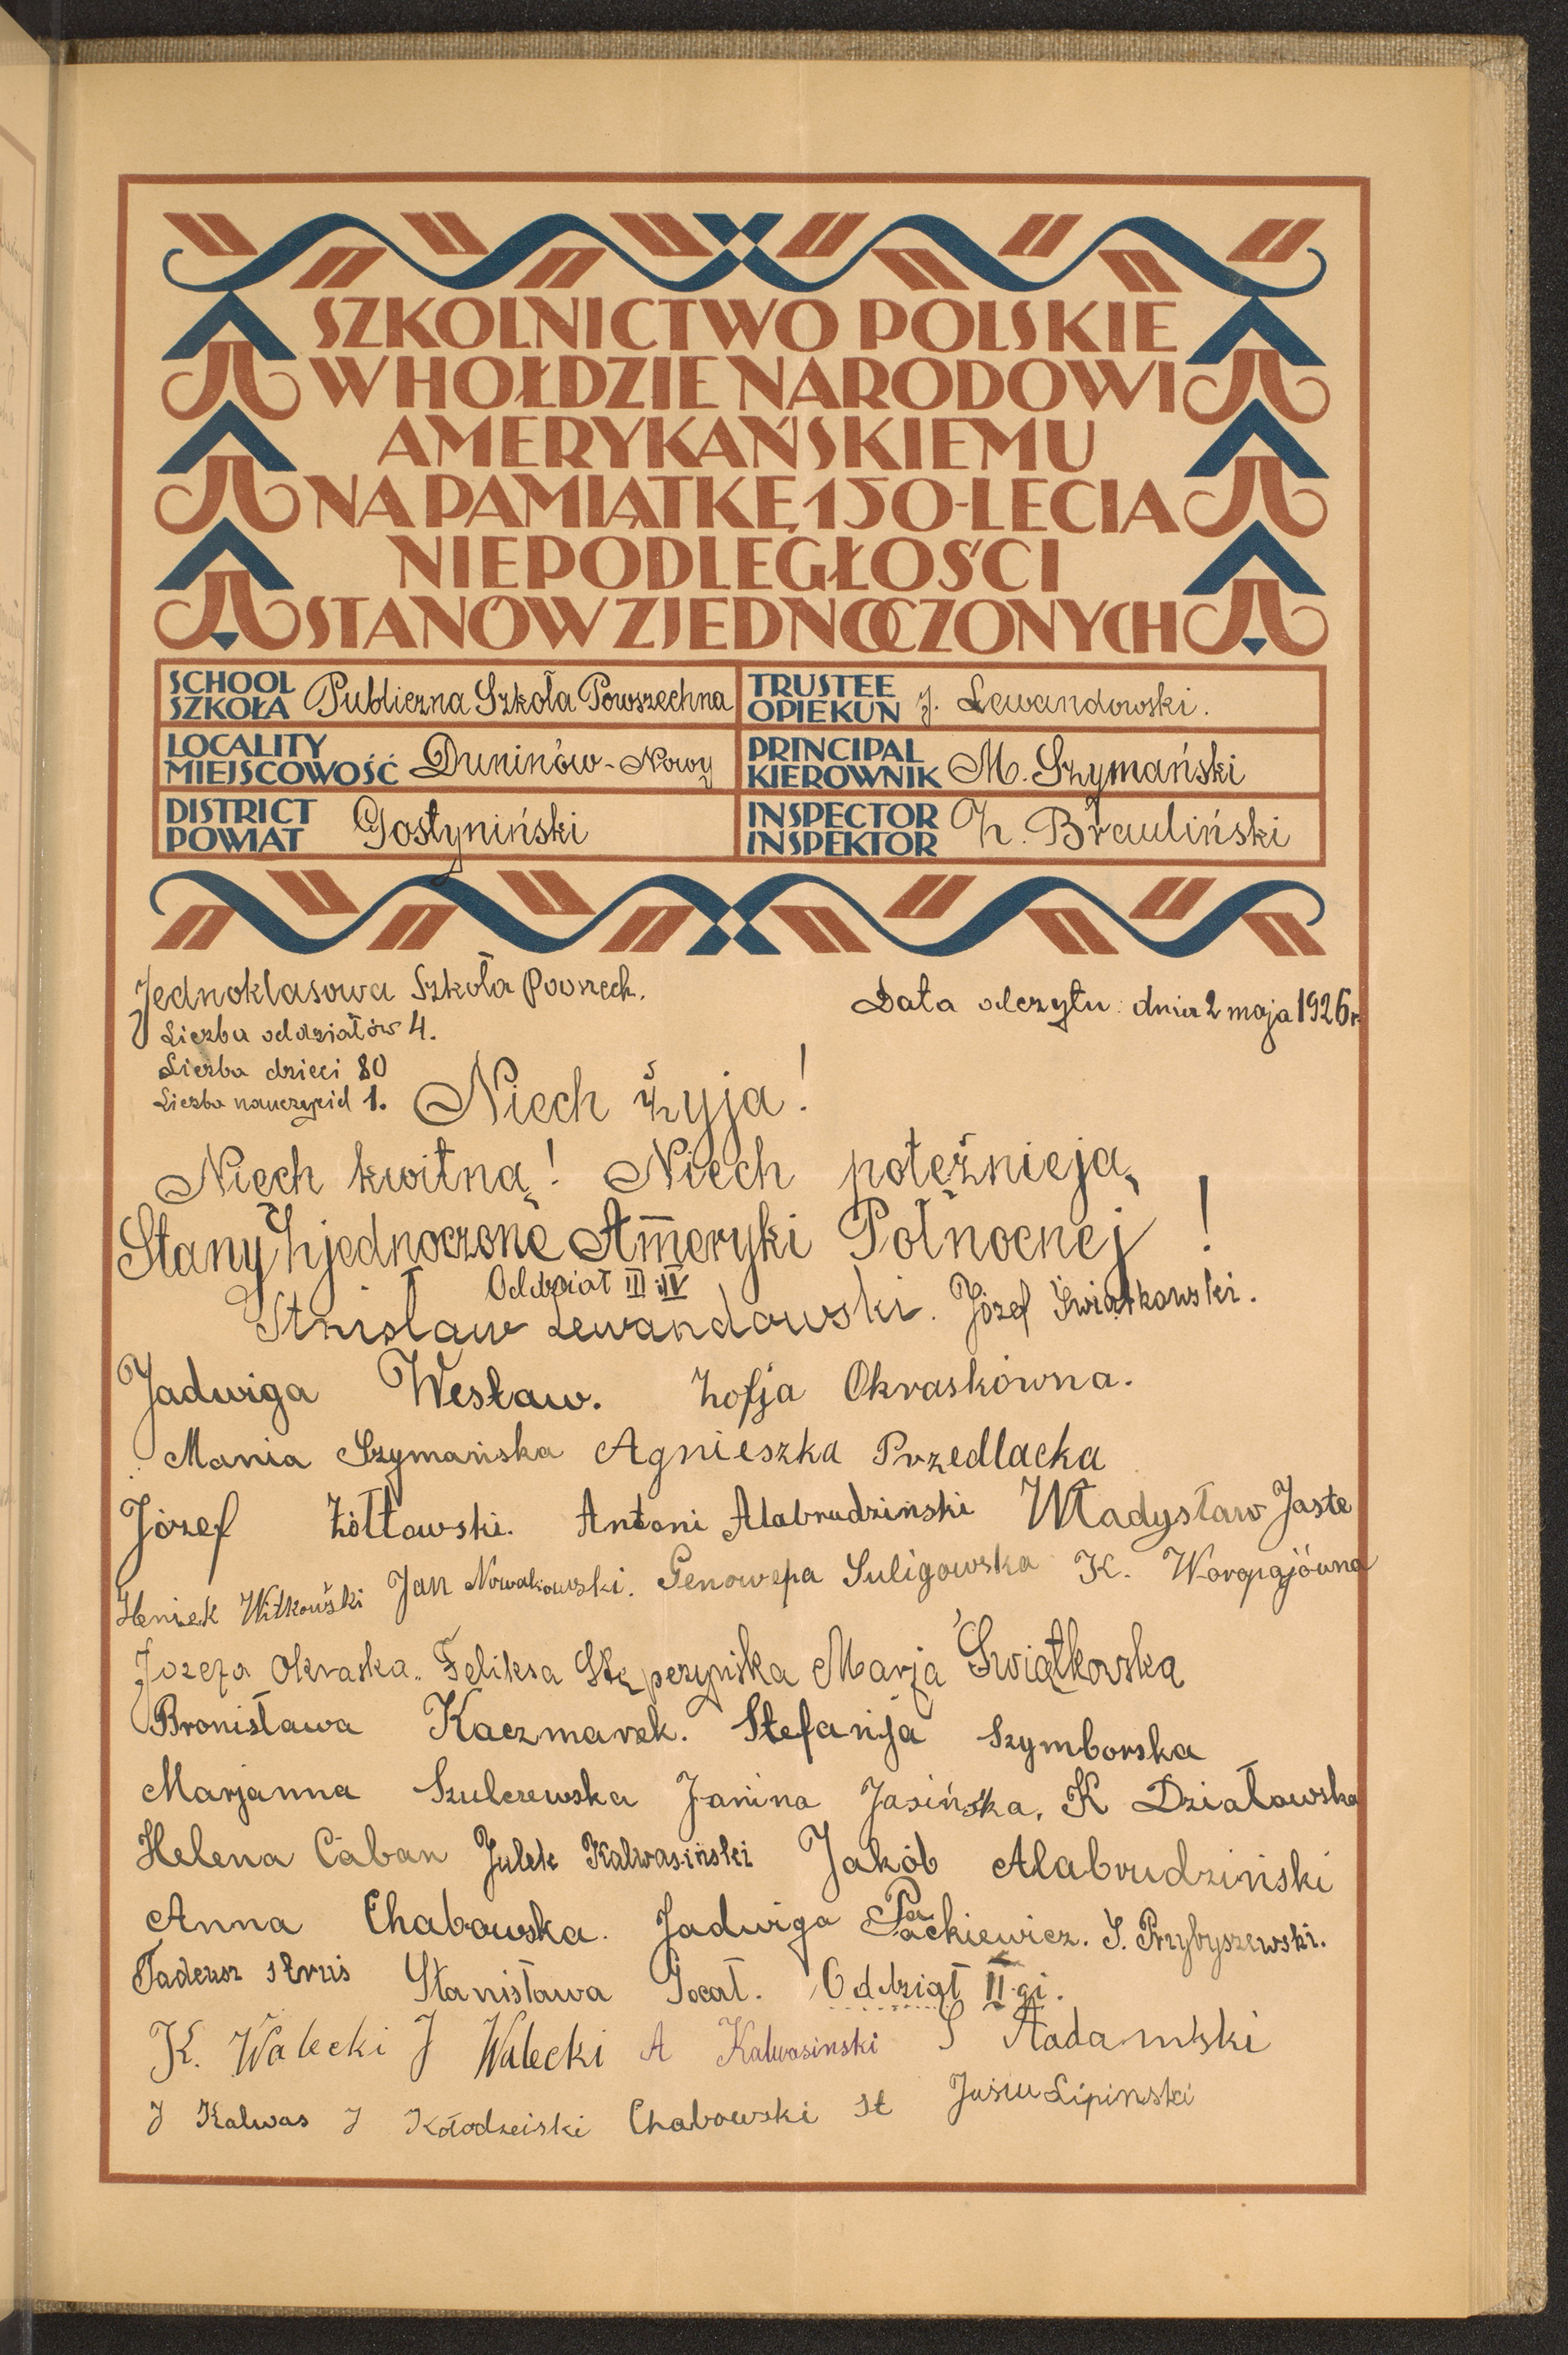 SZKOLNICTWO POLSKIE
W HOŁDZIE NARODOWI
AMERYKAŃSKIEMU
NA PAMIĄTKĘ 150-LECIA
NIEPODLEGŁOŚCI
STANÓW ZJEDNOCZONYCH
SCHOOL SZKOŁA Publiczna Szkoła Powszechna
TRUSTEE OPIEKUN J. Lewandowski.
LOCALITY MIEJSCOWOŚĆ Duninów-Nowy
PRINCIPAL KIEROWNIK M. Szymański
DISTRICT POWIAT Gostyniński
INSPECTOR INSPEKTOR Z. Brauliński
Jednoklasowa Szkoła Powszech.
Data odczytu: dnia 2 maja 1926 r.
Liczba oddziałów 4.
Liczba dzieci 80
Liczba nauczycieli 1.
Niech żyja!
Niech kwitną! Niech potężnieją
Stany Zjednoczone Ameryki Północnej!
Oddział III i IV
Stnisław Lewandowski. Józef Świątkowski.
Jadwiga Wesław. Zofja Okraskówna.
Mania Szymańska Agnieszka Przedlacka
Józef Żółtowski. Antoni Alabrudziński Władysław Jaste
Heniek Witkowski Jan Nowakowski. Genowefa Suligowska K. Woropajówna
Józefa Okraska. Feliksa Stępczyńska Marja Świątkowska
Bronisława Kaczmarek. Stefanja Szymborska
Marjanna Szulczewska Janina Jasińska. K Działowska
Helena Caban Julek Kalwasiński Jakób Alabrudziński
Anna Chabowska. Jadwiga Packiewicz. S. Przybyszewski.
Tadeusz Struś Stanisława Gocał. Oddział II-gi.
K. Walecki J Walecki A Kalwasinski S Aadamski
J Kalwas J Kołodzeiski Chabowski St Jasiu Lipinski